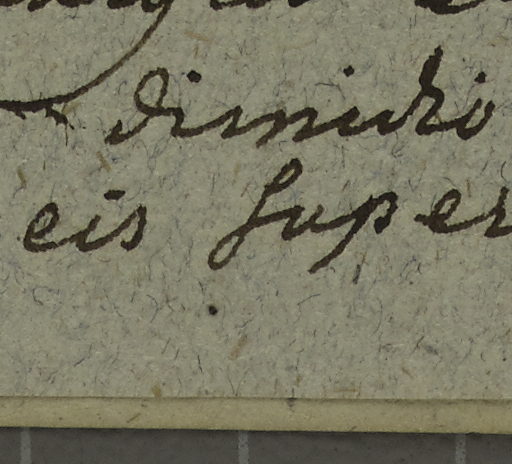 dimidio
eis super